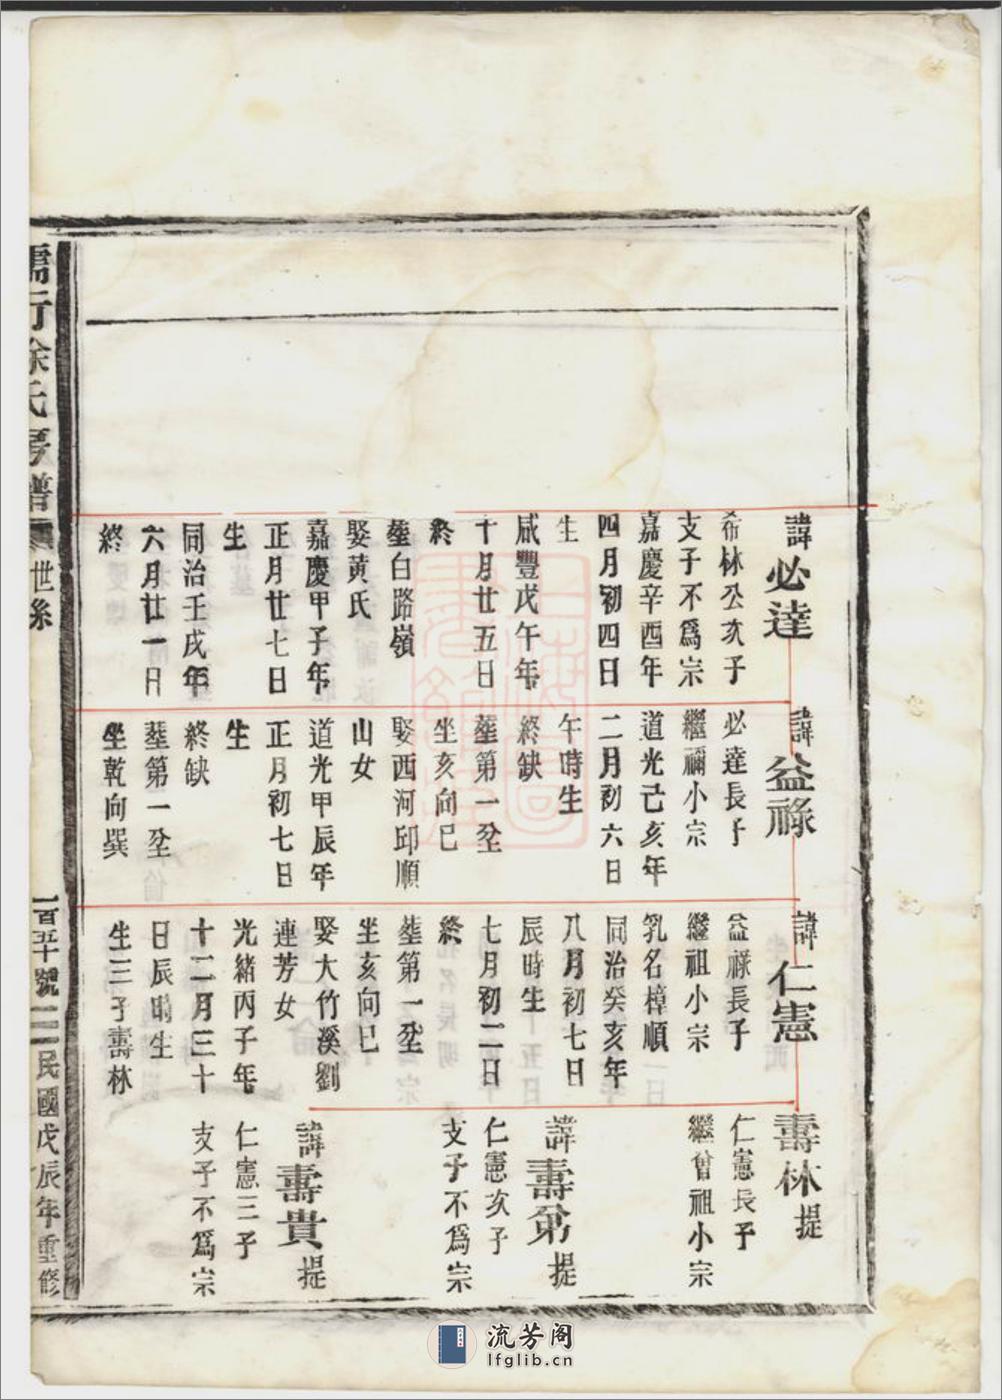 諱必達
希林公次子
支子不爲宗
嘉慶辛酉年
四月初四日
生
咸豐戊午年
十月廿五日
終
塟白路嶺
娶黃氏
嘉慶甲子年
正月廿七日
生
同治壬戌年
六月廿一日
終
諱益祿
必達長子
繼禰小宗
道光己亥年
二月初六日
午時生
終缺
塟第一坌
坐亥向巳
娶西河邱順
山女
道光甲辰年
正月初七日
生
終缺
塟第一坌
坐乾向巽
諱仁憲
益祿長子
繼祖小宗
乳名樟順
同治癸亥年
八月初七日
辰時生
七月初二日
終
塟第一坌
坐亥向巳
娶大竹溪劉
連芳女
光緒丙子年
十二月三十
日辰時生
生三子壽林
壽林提
仁憲長子
繼曾祖小宗
諱壽弟提
仁憲次子
支子不爲宗
諱壽貴提
仁憲三子
支子不爲宗
儒行徐氏房譜
世系
一百五十號
民國戊辰年重修
流芳阁
lfglib.cn